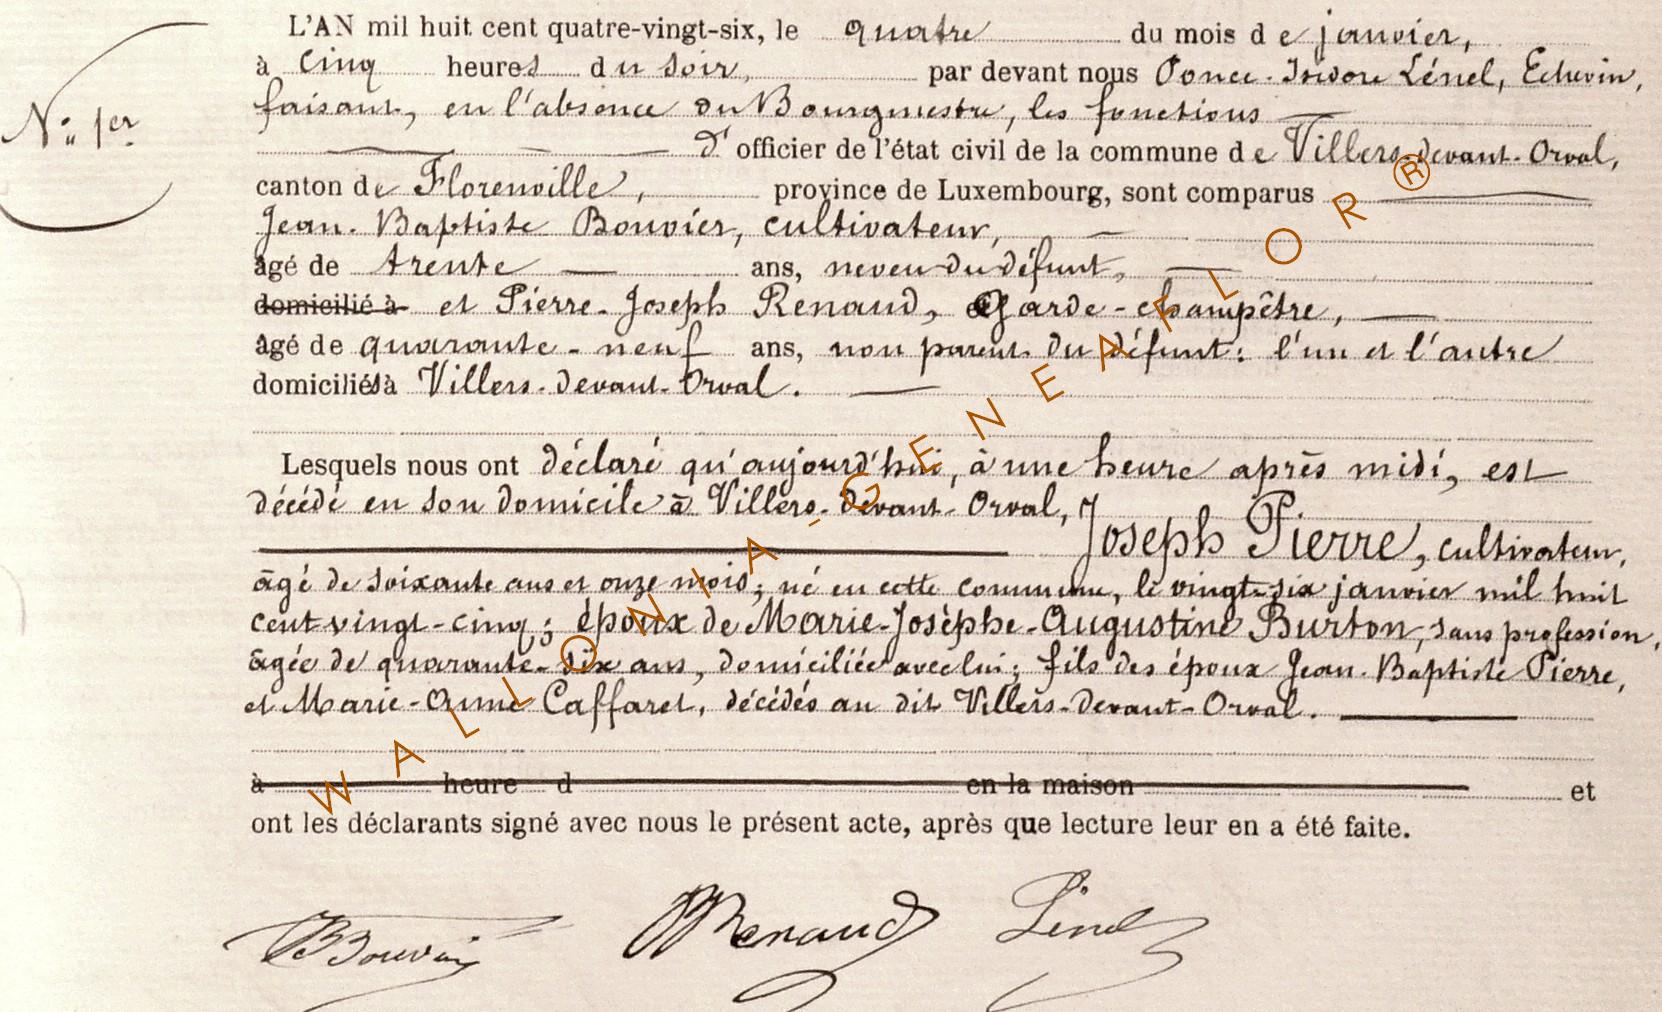 L'AN mil huit cent quatre-vingt-six, le quatre du mois de janvier,
à cinq heures du soir, par devant nous Ponce-Isidore Lénel, Echevin,
N° 1er
faisant, en l'absence du Bourgmestre, les fonctions
d'officier de l'état civil de la commune de Villers-devant-Orval,
canton de Florenville, province de Luxembourg, sont comparus
Jean-Baptiste Bouvier, cultivateur,
âgé de trente ans, neveu du défunt,
domicilié à et Pierre-Joseph Renaud, Garde-champêtre,
âgé de quarante-neuf ans, non parent du défunt: l'un et l'autre
domiciliés à Villers-devant-Orval.
Lesquels nous ont déclaré qu'aujourd'hui, à une heure après midi, est
décédé en son domicile à Villers-devant-Orval,
Joseph Pierre, cultivateur,
âgé de soixante ans et onze mois; né en cette commune, le vingt-six janvier mil huit
cent vingt-cinq; époux de Marie-Josèphe-Augustine Burton, sans profession,
âgée de quarante-six ans, domiciliée avec lui; fils des époux Jean-Baptiste Pierre,
et Marie-Anne Caffaret, décédés au dit Villers-devant-Orval.
à heure d en la maison et
ont les déclarants signé avec nous le présent acte, après que lecture leur en a été faite.
JBBouvier Renaud Lénel
WALLONIA-GENEAFLOR®